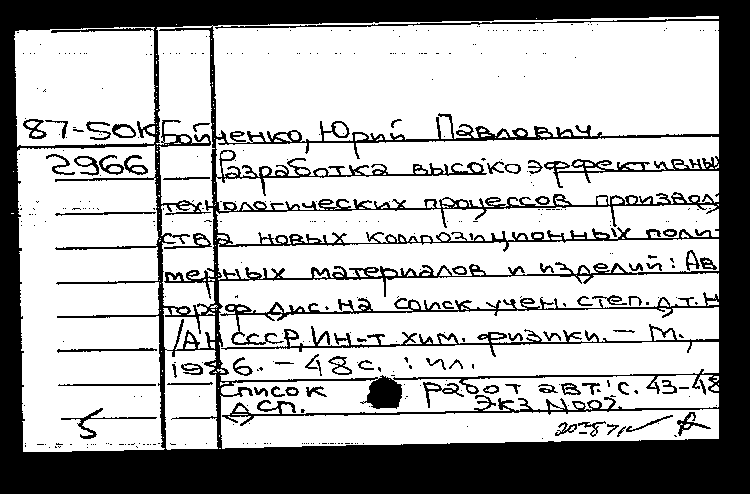 87-50к Бойченко, Юрий Павлович.
2966 Разработка высокоэффективны
технологических процессов производ
ства новых композиционных поли-
мерных материалов и изделий: Ав
тореф. дис. на соиск. учен. степ. д.т.н
/АН СССР, Ин-т хим. физики. – М.,
1986. – 48 с. : ил.
Список работ авт.: с. 43-48
ДСП. Экз. N007.
5